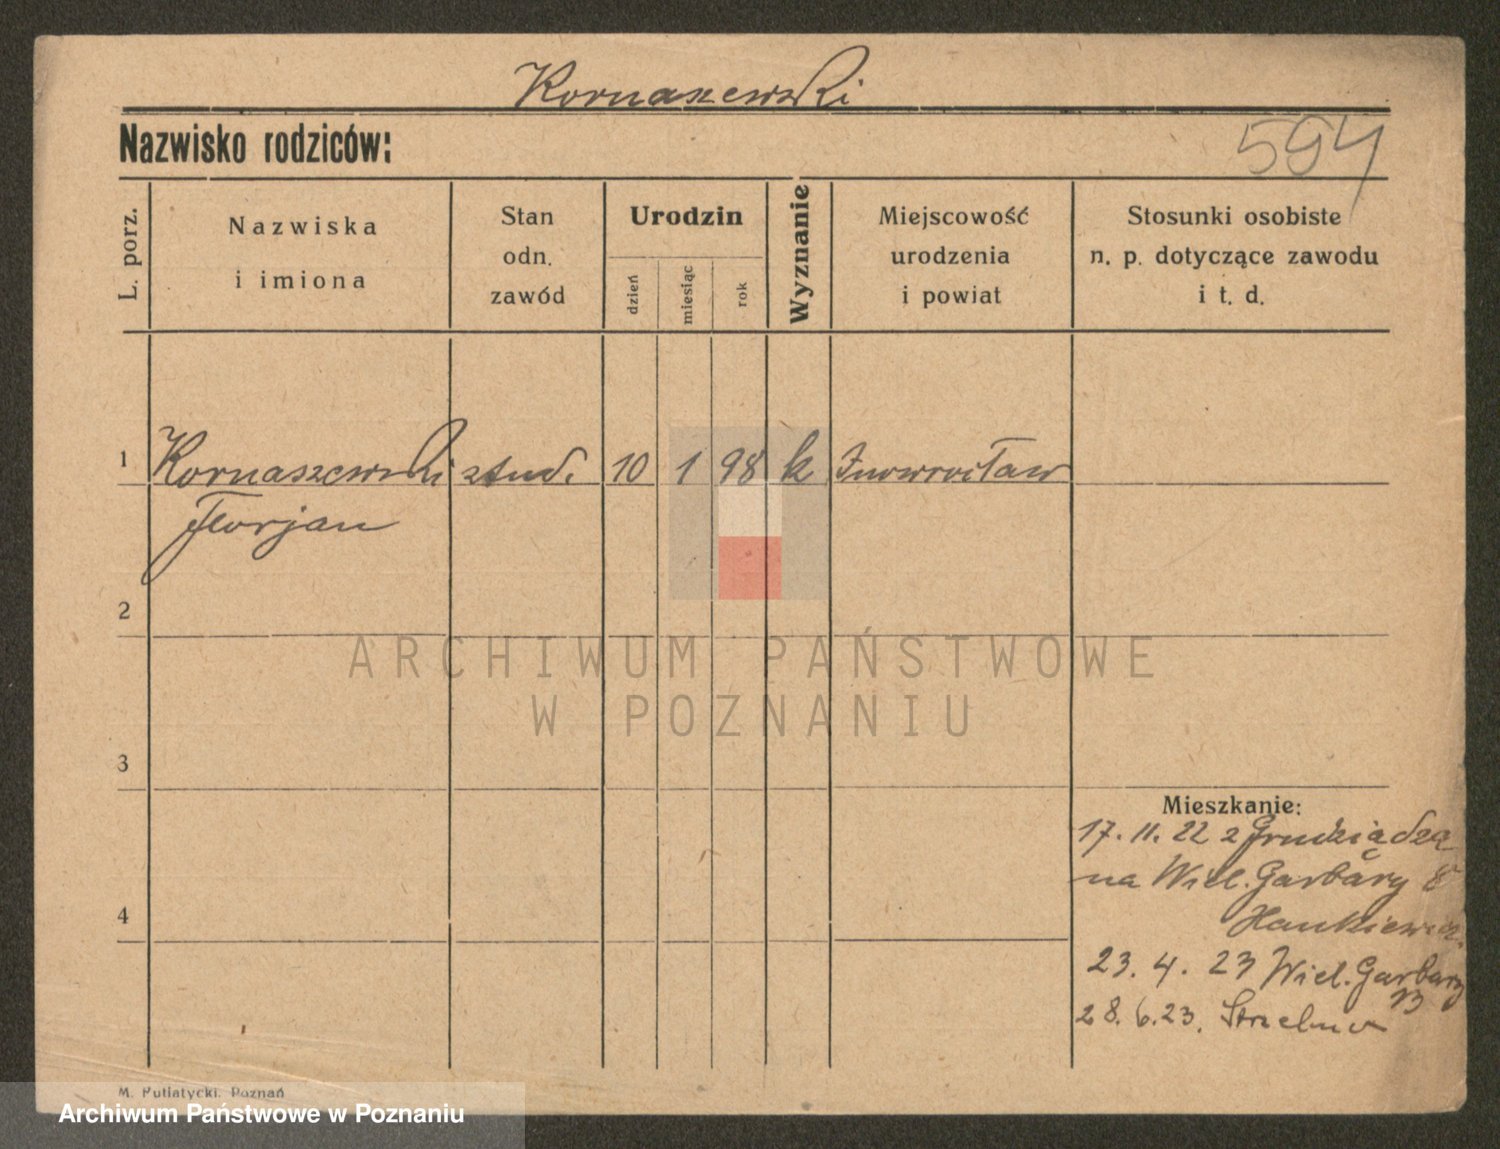 Kornaszewski
Nazwisko rodziców:
594
L. porz.
Nazwiska
i imiona
Stan
odn.
zawód
Urodzin
dzień
miesiąc
rok
Wyznanie
Miejscowość
urodzenia
i powiat
Stosunki osobiste
n. p. dotyczące zawodu
i t. d.
1 Kornaszewski stud. 10 1 98 k Inowrocław
Florjan
2
ARCHIWUM PAŃSTWOWE
W POZNANIU
3
Mieszkanie:
17. 11. 22 z Grudziądza
na Wiel. Garbary 8
4
Hankiewicz
23. 4. 23 Wiel. Garbary
28. 6. 23. Strzelno
M. Putiatycki. Poznań
Archiwum Państwowe w Poznaniu